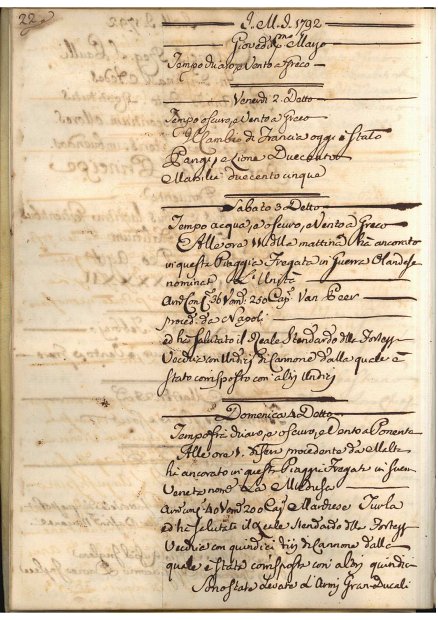 22
J. M. J. 1792
Giovedì pmo Maggio
Tempo chiaro, e Vento a Greco
Venerdì 2. Detto
Tempo oscuro, e Vento a Greco
Il Cambio di Francia oggi è stato
Parigi, e Lione Duecento
Marsilia duecento cinque
Sabato 3 Detto
Tempo acqua, e oscuro, e Vento a Greco
Alle ore della mattina ha ancorato
in questa Piaggia Fregata in Guerra Olandese
nominata L' Unità
Van Peer
proced. da Napoli
ed ha salutato il Reale Stendardo della Fortezza
Vecchia con Undici di Cannone dalla quale è
stato corrisposto con altri Undici
Domenica 4 Detto
Tempo fra chiaro, e oscuro, e Vento a Ponente
Alle ore procedente da Malta
ha ancorato in questa Piaggia Fregata in Guerra
Veneta La Medusa
ed ha salutato il Reale Stendardo della Fortezza
Vecchia con quindici tiri di Cannone dalla
quale è stato corrisposto con altri quindici
Sono state levate l' Armi Gran-Ducali